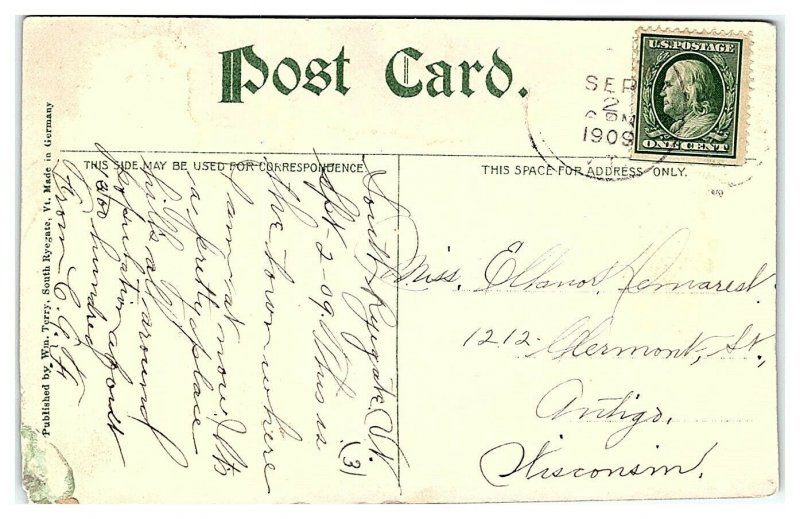 Post Card.
U.S. POSTAGE
ONE CENT
SEP
2
6 PM
1909
THIS SIDE MAY BE USED FOR CORRESPONDENCE
THIS SPACE FOR ADDRESS ONLY.
Published by Wm. Terry, South Ryegate, Vt. Made in Germany
South Ryegate, Vt.
Sept 2-09. This is (3)
the town where
I am at now. Its
a pretty place
hills all around
population about
hundred
From E.G.H.
Miss. Elleanor Demarest
1212 Clermont, St.,
Antigo,
Wisconsin.